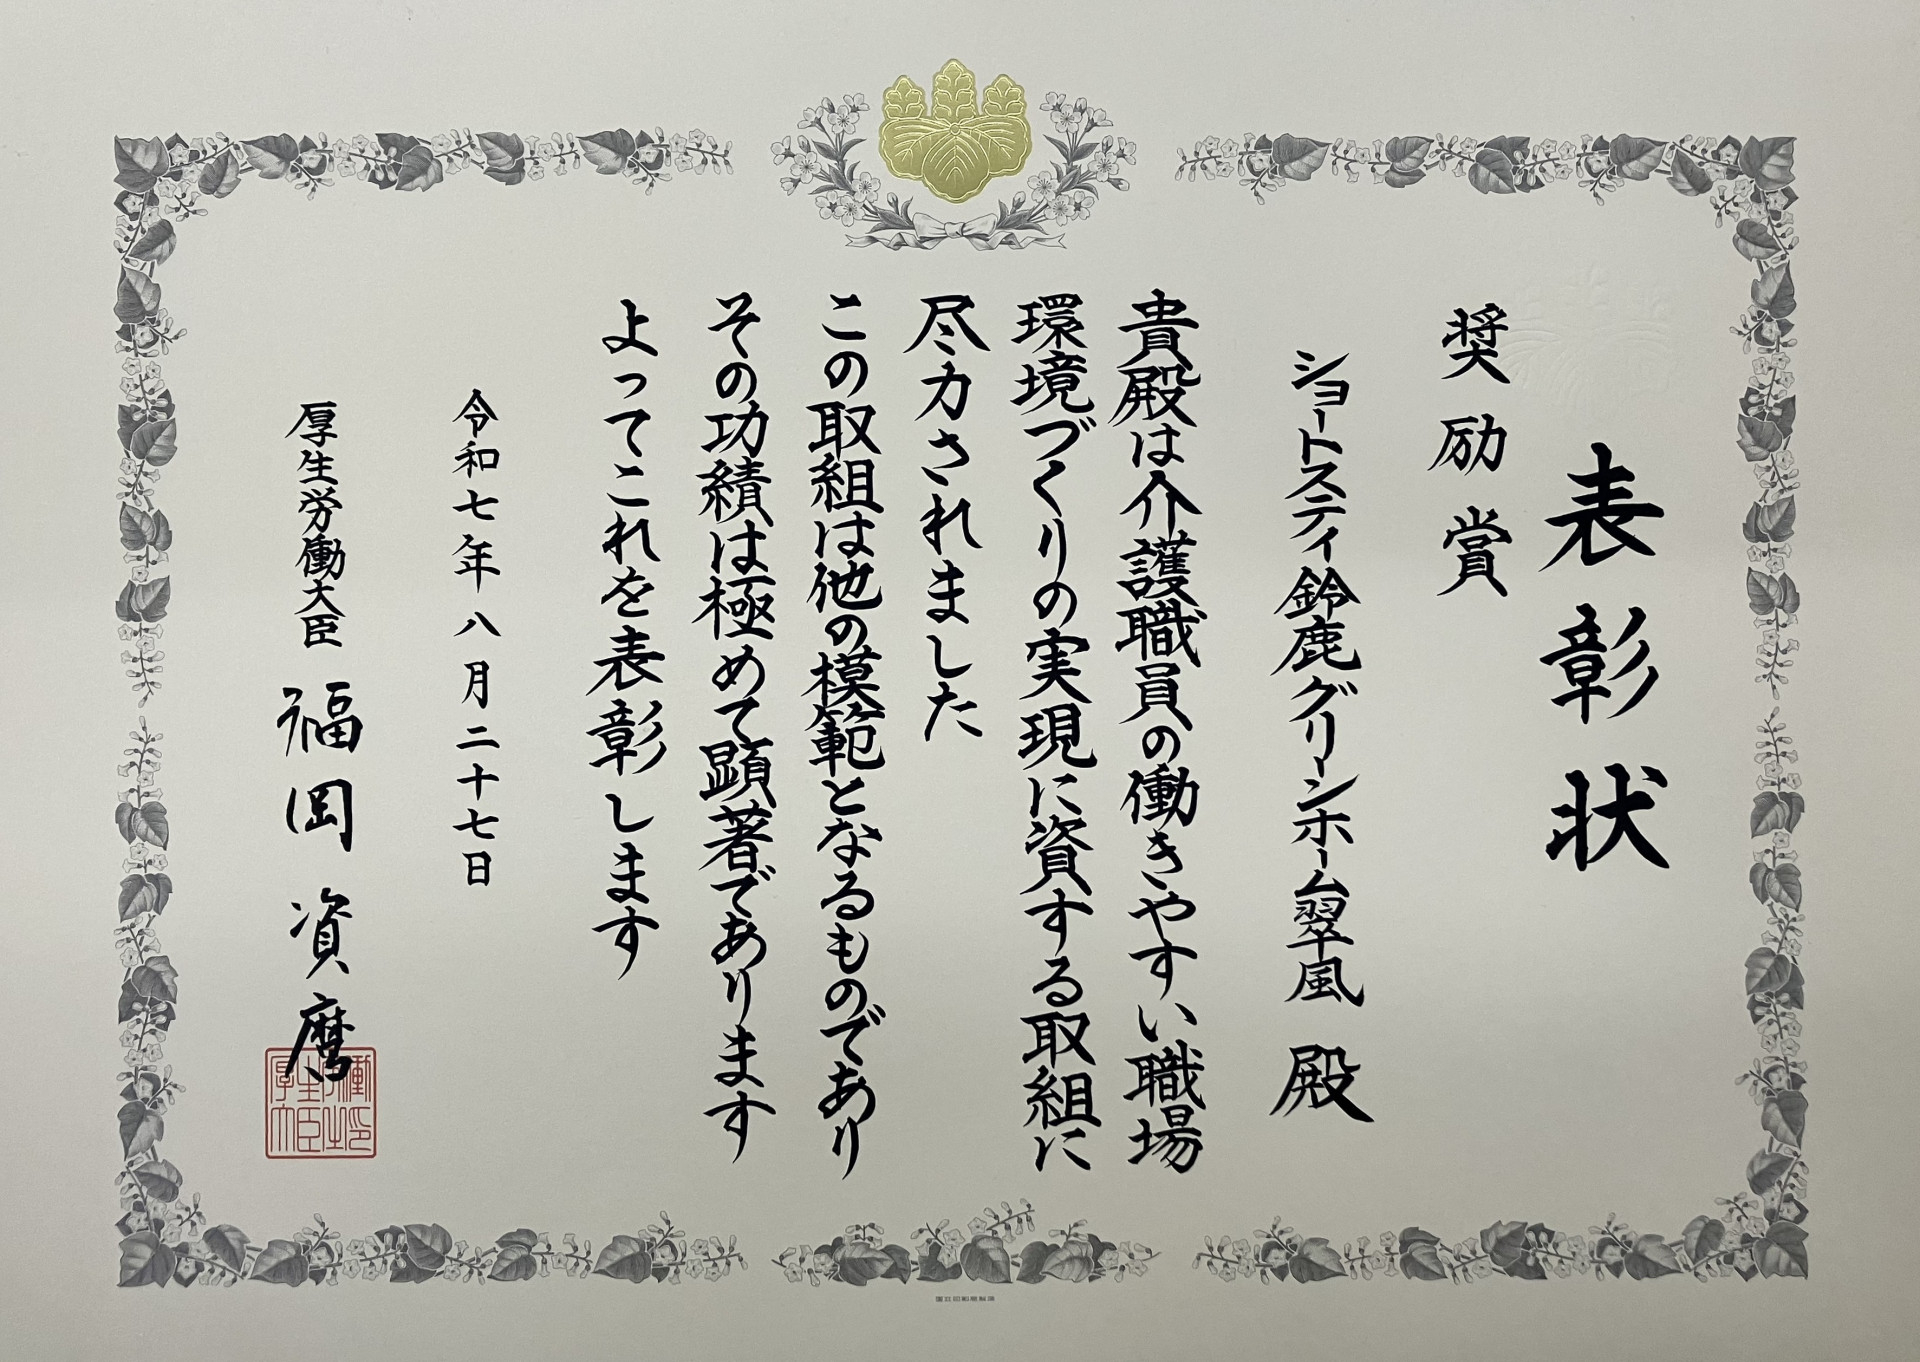 表彰状
奨励賞
ショートスティ鈴鹿グリーンホーム翠風 殿
貴殿は介護職員の働きやすい職場
環境づくりの実現に資する取組に
尽力されました
この取組は他の模範となるものであり
その功績は極めて顕著であります
よってこれを表彰します
令和七年八月二十七日
厚生労働大臣 福岡資麿